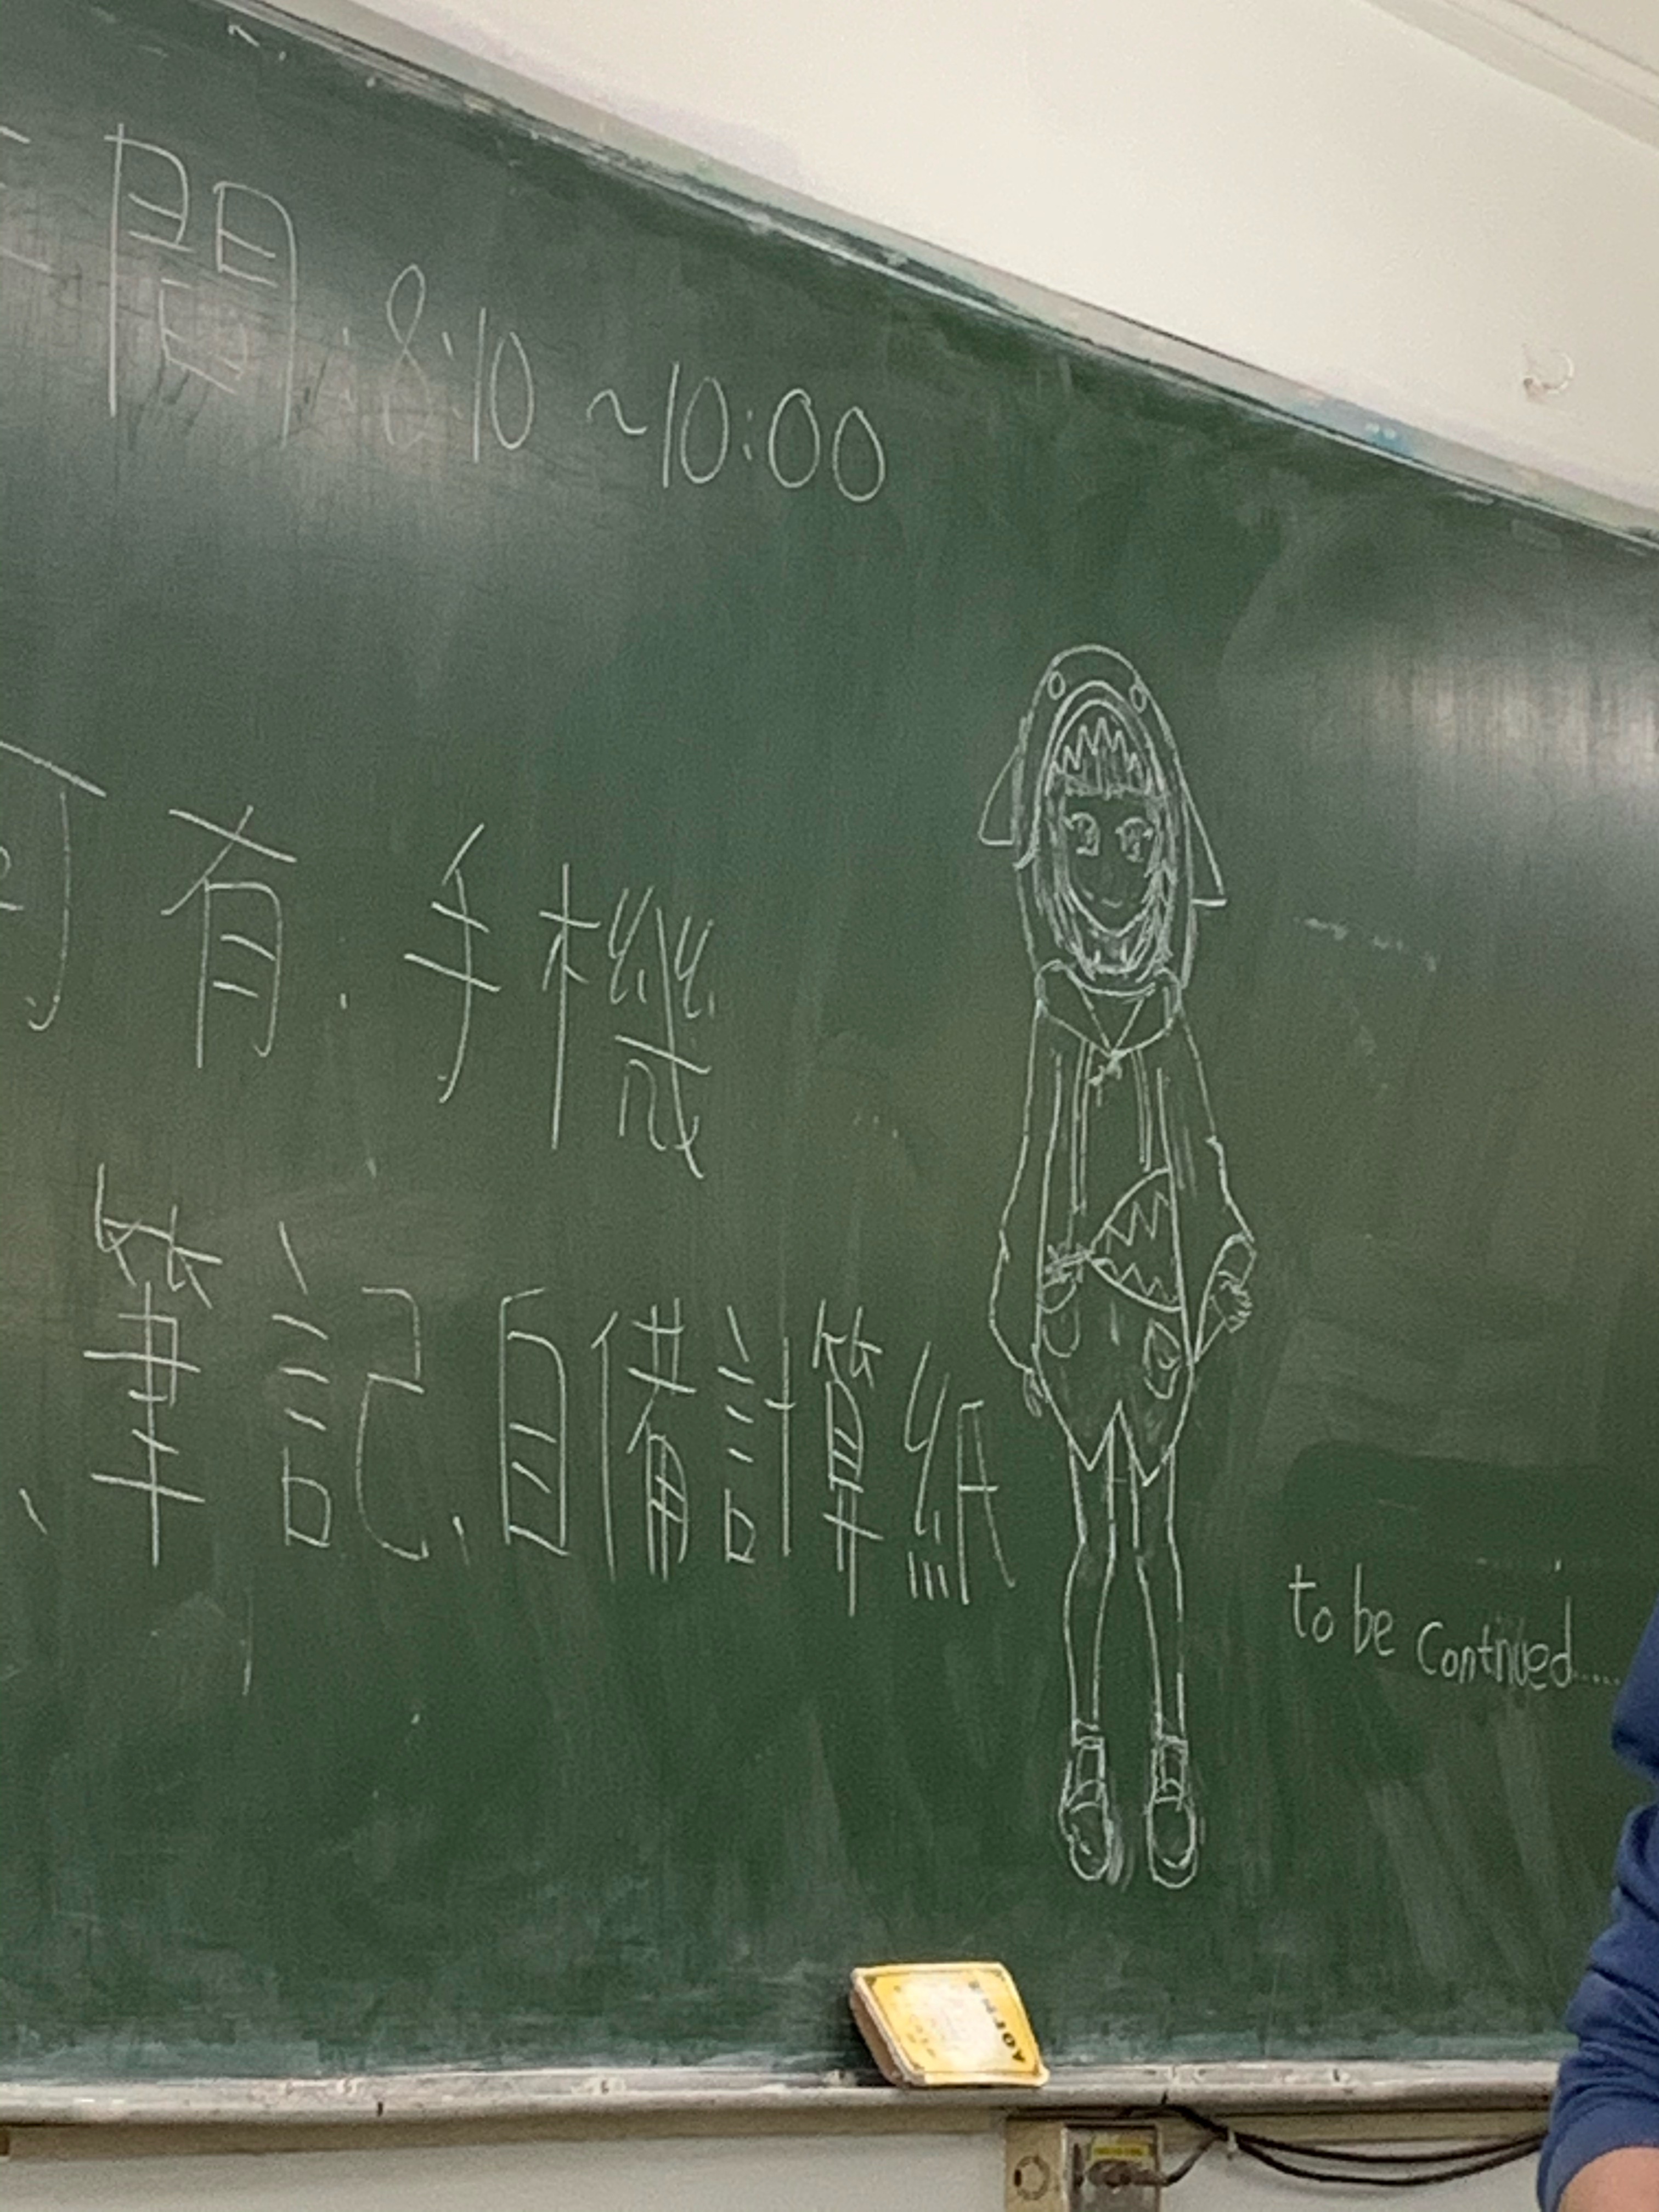 間:8:10~10:00
可有.手機
、筆記、自備計算紙
to be Contnued.....